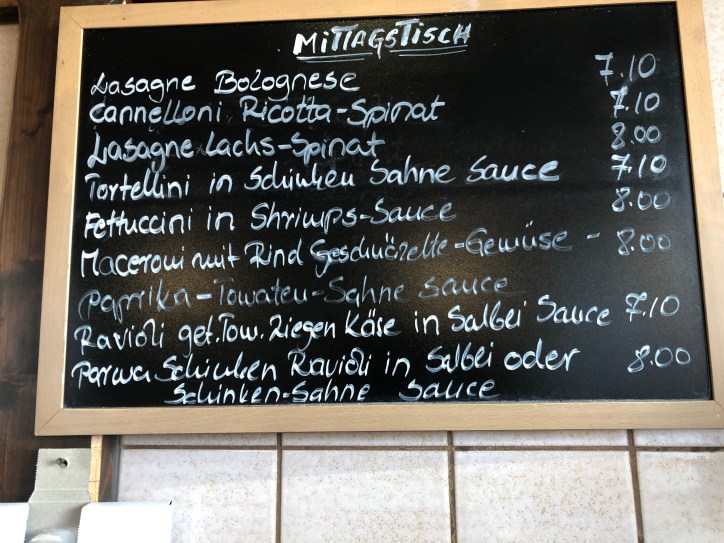 MITTAGSTISCH
Lasagne Bolognese 7.10
Cannelloni Ricotta-Spinat 7.10
Lasagne Lachs-Spinat 8.00
Tortellini in Schinken Sahne Sauce 7.10
Fettuccini in Shrimps-Sauce 8.00
Maceroni mit Rind Geschnözelte-Gewüse - 8.00
Paprika-Tomaten-Sahne Sauce
Ravioli get. Tom. Ziegen Käse in Salbei Sauce 7.10
Parma Schinken Ravioli in Salbei oder 8.00
Schinken-Sahne Sauce